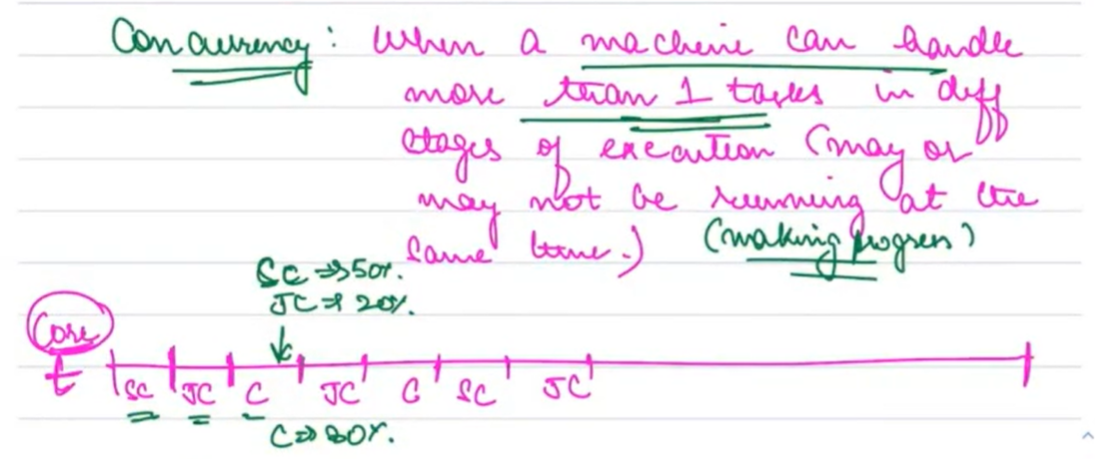 Concurrency : When a machine can handle
more than 1 tasks in diff
stages of execution (may or
may not be running at the
same time.) (making progress)
SC => 50%.
JC => 20%.
Core
t SC JC C JC C SC JC
C => 80%.